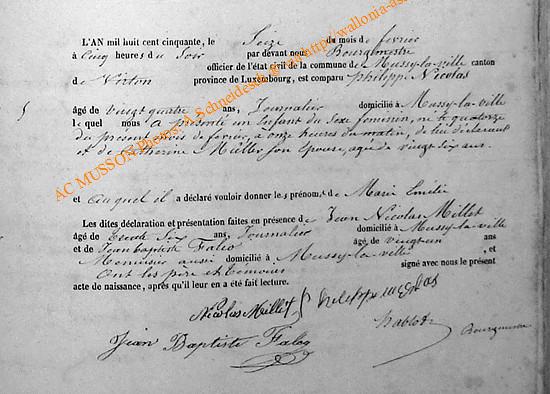 L'AN mil huit cent cinquante, le Seize du mois de février
à Cinq heures du Soir par devant nous Bourgmestre
officier de l'état civil de la commune de Mussy-la-ville canton
de Virton province de Luxembourg, est comparu philippe Nicolas
âgé de vingt quatre ans, Journalier domicilié à Mussy-la-ville
le quel nous a présenté un Enfant du Sexe feminin, né le quatorze
du présent mois de fevrier, à onze heures du matin, de lui déclarant
et de Catherine Miller son Epouse, agée de vingt six ans.
et auquel il a déclaré vouloir donner les prénoms de Marie Emélie
Les dites déclaration et présentation faites en présence de Jean Nicolas Millet
âgé de trente Six ans, Journalier domicilié à Mussy-la ville
et de Jean baptiste Faloo âgé de vingt un ans
Menuisier aussi domicilié à Mussy-la-ville, et
Ont les père et témoins signé avec nous le présent
acte de naissance, après qu'il leur en a été fait lecture.
Nicolas Millet philippe nicolas
Jean Baptiste Faloo Bourgmestre
AC MUSSON Photos: A Schneidesch @ http://wallonia-as